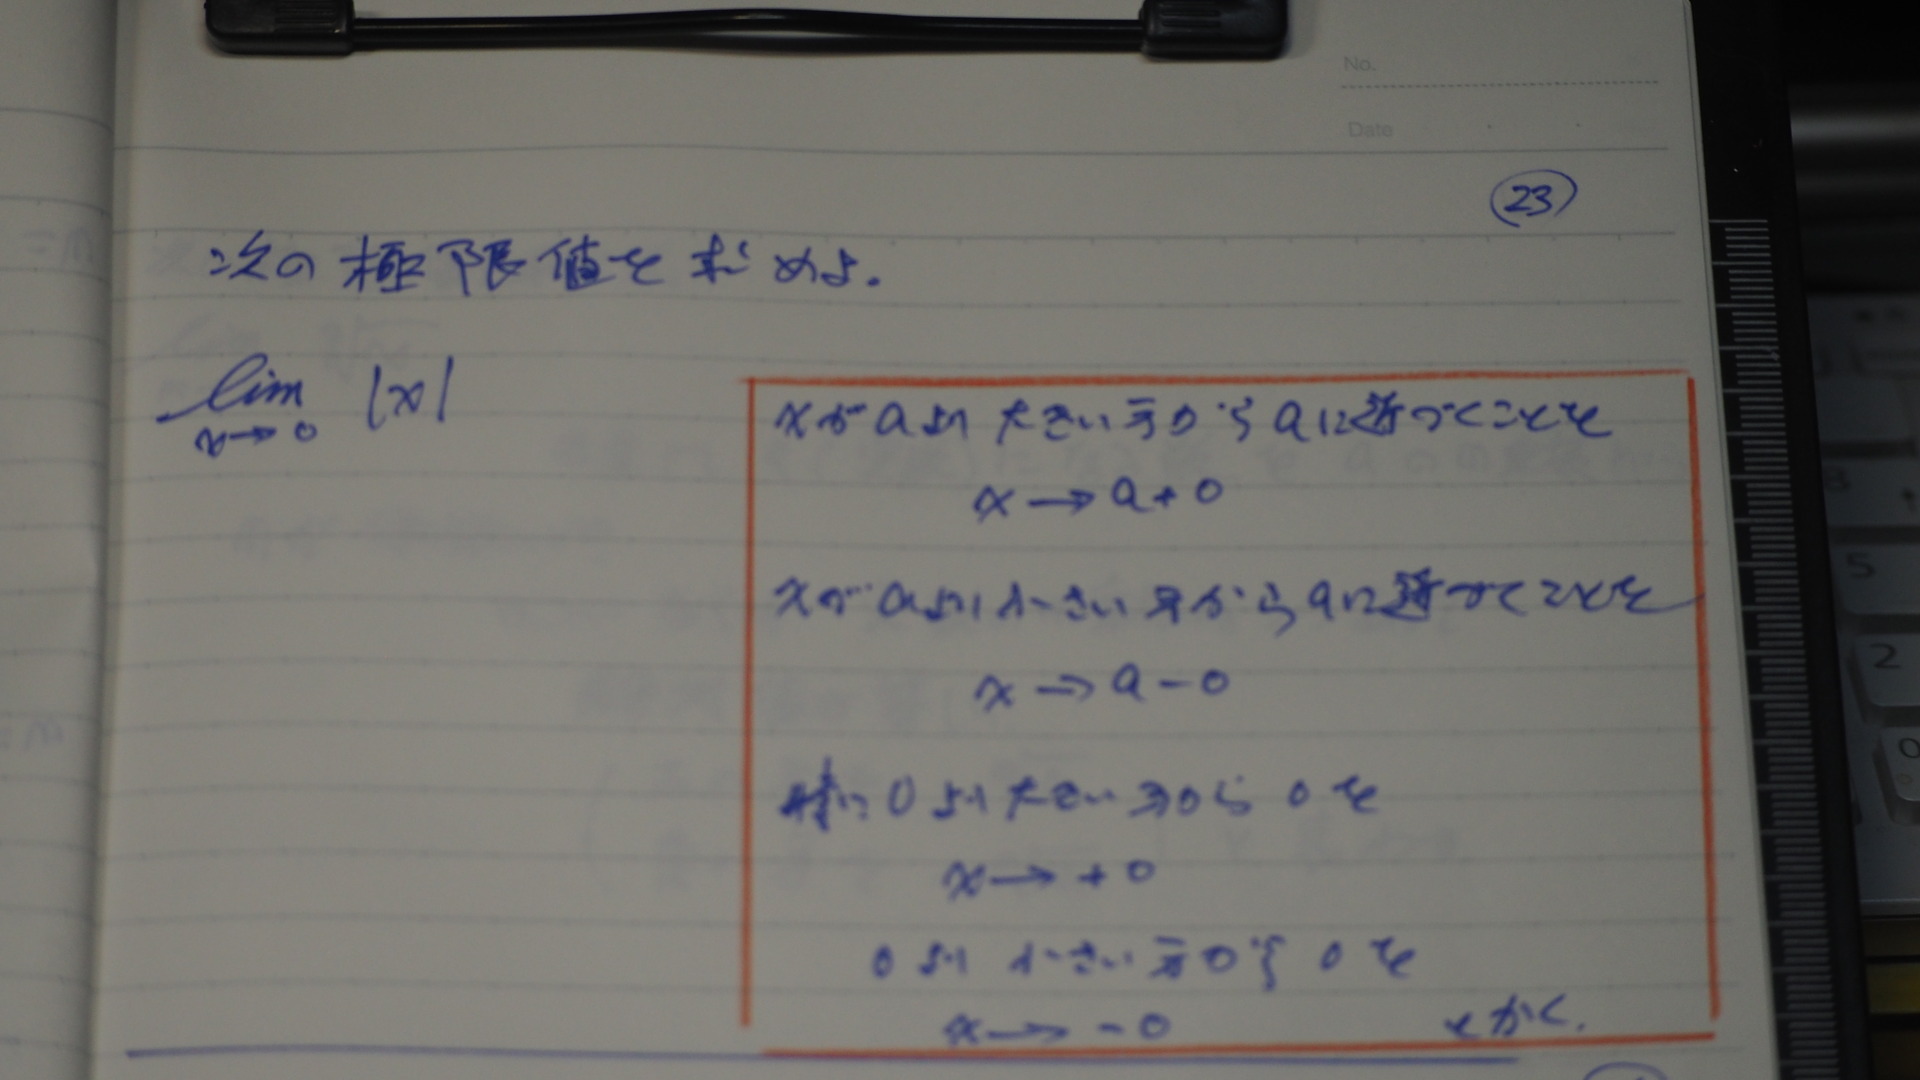 No.
Date
23
次の極限値を求めよ.
lim |x|
x→0
xがaより大きい方からaに近づくことを
x→a+0
xがaより小さい方からaに近づくことを
x→a-0
特に0より大きい方から0を
x→+0
0より小さい方から0を
x→-0 とかく.
5
2
0